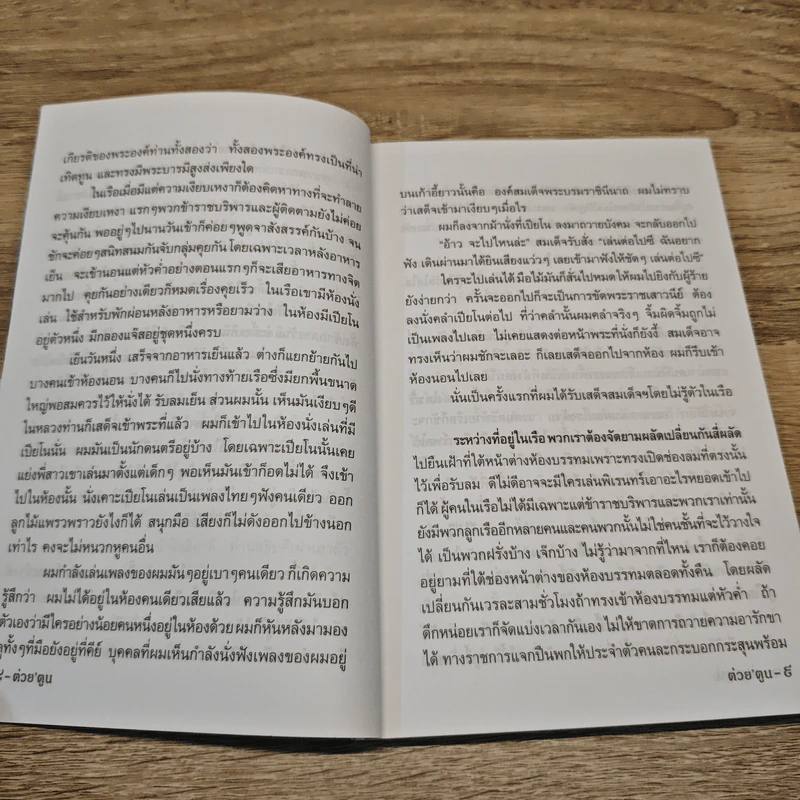 เกียรติของพระองค์ท่านทั้งสองว่า ทั้งสองพระองค์ทรงเป็นที่น่า
เทิดทูน และทรงมีพระบารมีสูงส่งเพียงใด
ในเรือเมื่อมีแต่ความเงียบเหงาก็ต้องคิดหาทางที่จะทำลาย
ความเงียบเหงา แรกๆพวกข้าราชบริพารและผู้ติดตามยังไม่ค่อย
จะคุ้นกัน พออยู่ๆไปนานวันเข้าก็ค่อยๆพูดจาสังสรรค์กันบ้าง จน
ชักจะค่อยๆสนิทสนมกันจับกลุ่มคุยกัน โดยเฉพาะเวลาหลังอาหาร
เย็น จะเข้านอนแต่หัวค่ำอย่างตอนแรกๆก็จะเสียอาหารทางจิต
มากไป คุยกันอย่างเดียวก็หมดเรื่องคุยเร็ว ในเรือเขามีห้องนั่ง
เล่น ใช้สำหรับพักผ่อนหลังอาหารหรือยามว่าง ในห้องมีเปียโน
อยู่ตัวหนึ่ง มีกลองแจ๊สอยู่ชุดหนึ่งครบ
เย็นวันหนึ่ง เสร็จจากอาหารเย็นแล้ว ต่างก็แยกย้ายกันไป
บางคนเข้าห้องนอน บางคนก็ไปนั่งทางท้ายเรือซึ่งมียกพื้นขนาด
ใหญ่พอสมควรไว้ให้นั่งได้ รับลมเย็น ส่วนผมนั้น เห็นมันเงียบๆดี
ในหลวงท่านก็เสด็จเข้าพระที่แล้ว ผมก็เข้าไปในห้องนั่งเล่นที่มี
เปียโนนั่น ผมมันเป็นนักดนตรีอยู่บ้าง โดยเฉพาะเปียโนนั้นเคย
แย่งพี่สาวเขาเล่นมาตั้งแต่เด็กๆ พอเห็นมันเข้าก็อดไม่ได้ จึงเข้า
ไปในห้องนั้น นั่งเคาะเปียโนเล่นเป็นเพลงไทยๆฟังคนเดียว ออก
ลูกไม้แพรวพราวยังไงก็ได้ สนุกมือ เสียงก็ไม่ดังออกไปข้างนอก
เท่าไร คงจะไม่หนวกหูคนอื่น
ผมกำลังเล่นเพลงของผมมันๆอยู่เบาๆคนเดียว ก็เกิดความ
รู้สึกว่า ผมไม่ได้อยู่ในห้องคนเดียวเสียแล้ว ความรู้สึกมันบอก
ตัวเองว่ามีใครอย่างน้อยคนหนึ่งอยู่ในห้องด้วย ผมก็หันหลังมามอง
ทั้งๆที่มือยังอยู่ที่คีย์ บุคคลที่ผมเห็นกำลังนั่งฟังเพลงของผมอยู่
-ต่วย'ตูน
บนเก้าอี้ยาวนั้นคือ องค์สมเด็จพระบรมราชินีนาถ ผมไม่ทราบ
ว่าเสด็จเข้ามาเงียบๆเมื่อไร
ผมก็ลงจากม้านั่งที่เปียโน ลงมาถวายบังคม จะกลับออกไป
"อ้าว จะไปไหนล่ะ" สมเด็จรับสั่ง "เล่นต่อไปซี ฉันอยาก
ฟัง เดินผ่านมาได้ยินเสียงแว่วๆ เลยเข้ามาฟังให้ชัดๆ เล่นต่อไปซี"
ใครจะไปเล่นได้ มือไม้มันก็สั่นไปหมดให้ผมไปยิงกับผู้ร้าย
ยังง่ายกว่า ครั้นจะออกไปก็จะเป็นการขัดพระราชเสาวนีย์ ต้อง
ลงนั่งคลำเปียโนต่อไป ที่ว่าคลำนั้นผมคลำจริงๆ จิ้มผิดจิ้มถูกไม่
เป็นเพลงไปเลย ไม่เคยแสดงต่อหน้าพระที่นั่งก็ยังงี้ สมเด็จอาจ
ทรงเห็นว่าผมชักจะเลอะ ก็เลยเสด็จออกไปจากห้อง ผมก็รีบเข้า
ห้องนอนไปเลย
นั่นเป็นครั้งแรกที่ผมได้รับเสด็จสมเด็จฯโดยไม่รู้ตัวในเรือ
ระหว่างที่อยู่ในเรือ พวกเราต้องจัดยามผลัดเปลี่ยนกันสี่ผลัด
ไปยืนเฝ้าที่ใต้หน้าต่างห้องบรรทมเพราะทรงเปิดช่องลมที่ตรงนั้น
ไว้เพื่อรับลม ดีไม่ดีอาจจะมีใครเล่นพิเรนทร์เอาอะไรหยอดเข้าไป
ก็ได้ ผู้คนในเรือไม่ได้มีเฉพาะแต่ข้าราชบริพารและพวกเราเท่านั้น
ยังมีพวกลูกเรืออีกหลายคนและคนพวกนั้นไม่ใช่คนชั้นที่จะไว้วางใจ
ได้ เป็นพวกฝรั่งบ้าง เจ๊กบ้าง ไม่รู้ว่ามาจากที่ไหน เราก็ต้องคอย
อยู่ยามที่ใต้ช่องหน้าต่างของห้องบรรทมตลอดทั้งคืน โดยผลัด
เปลี่ยนกันเวรละสามชั่วโมงถ้าทรงเข้าห้องบรรทมแต่หัวค่ำ ถ้า
ดึกหน่อยเราก็จัดแบ่งเวลากันเอง ไม่ให้ขาดการถวายความอารักขา
ได้ ทางราชการแจกปืนพกให้ประจำตัวคนละกระบอกกระสุนพร้อม
ต่วย'ตูน-๙